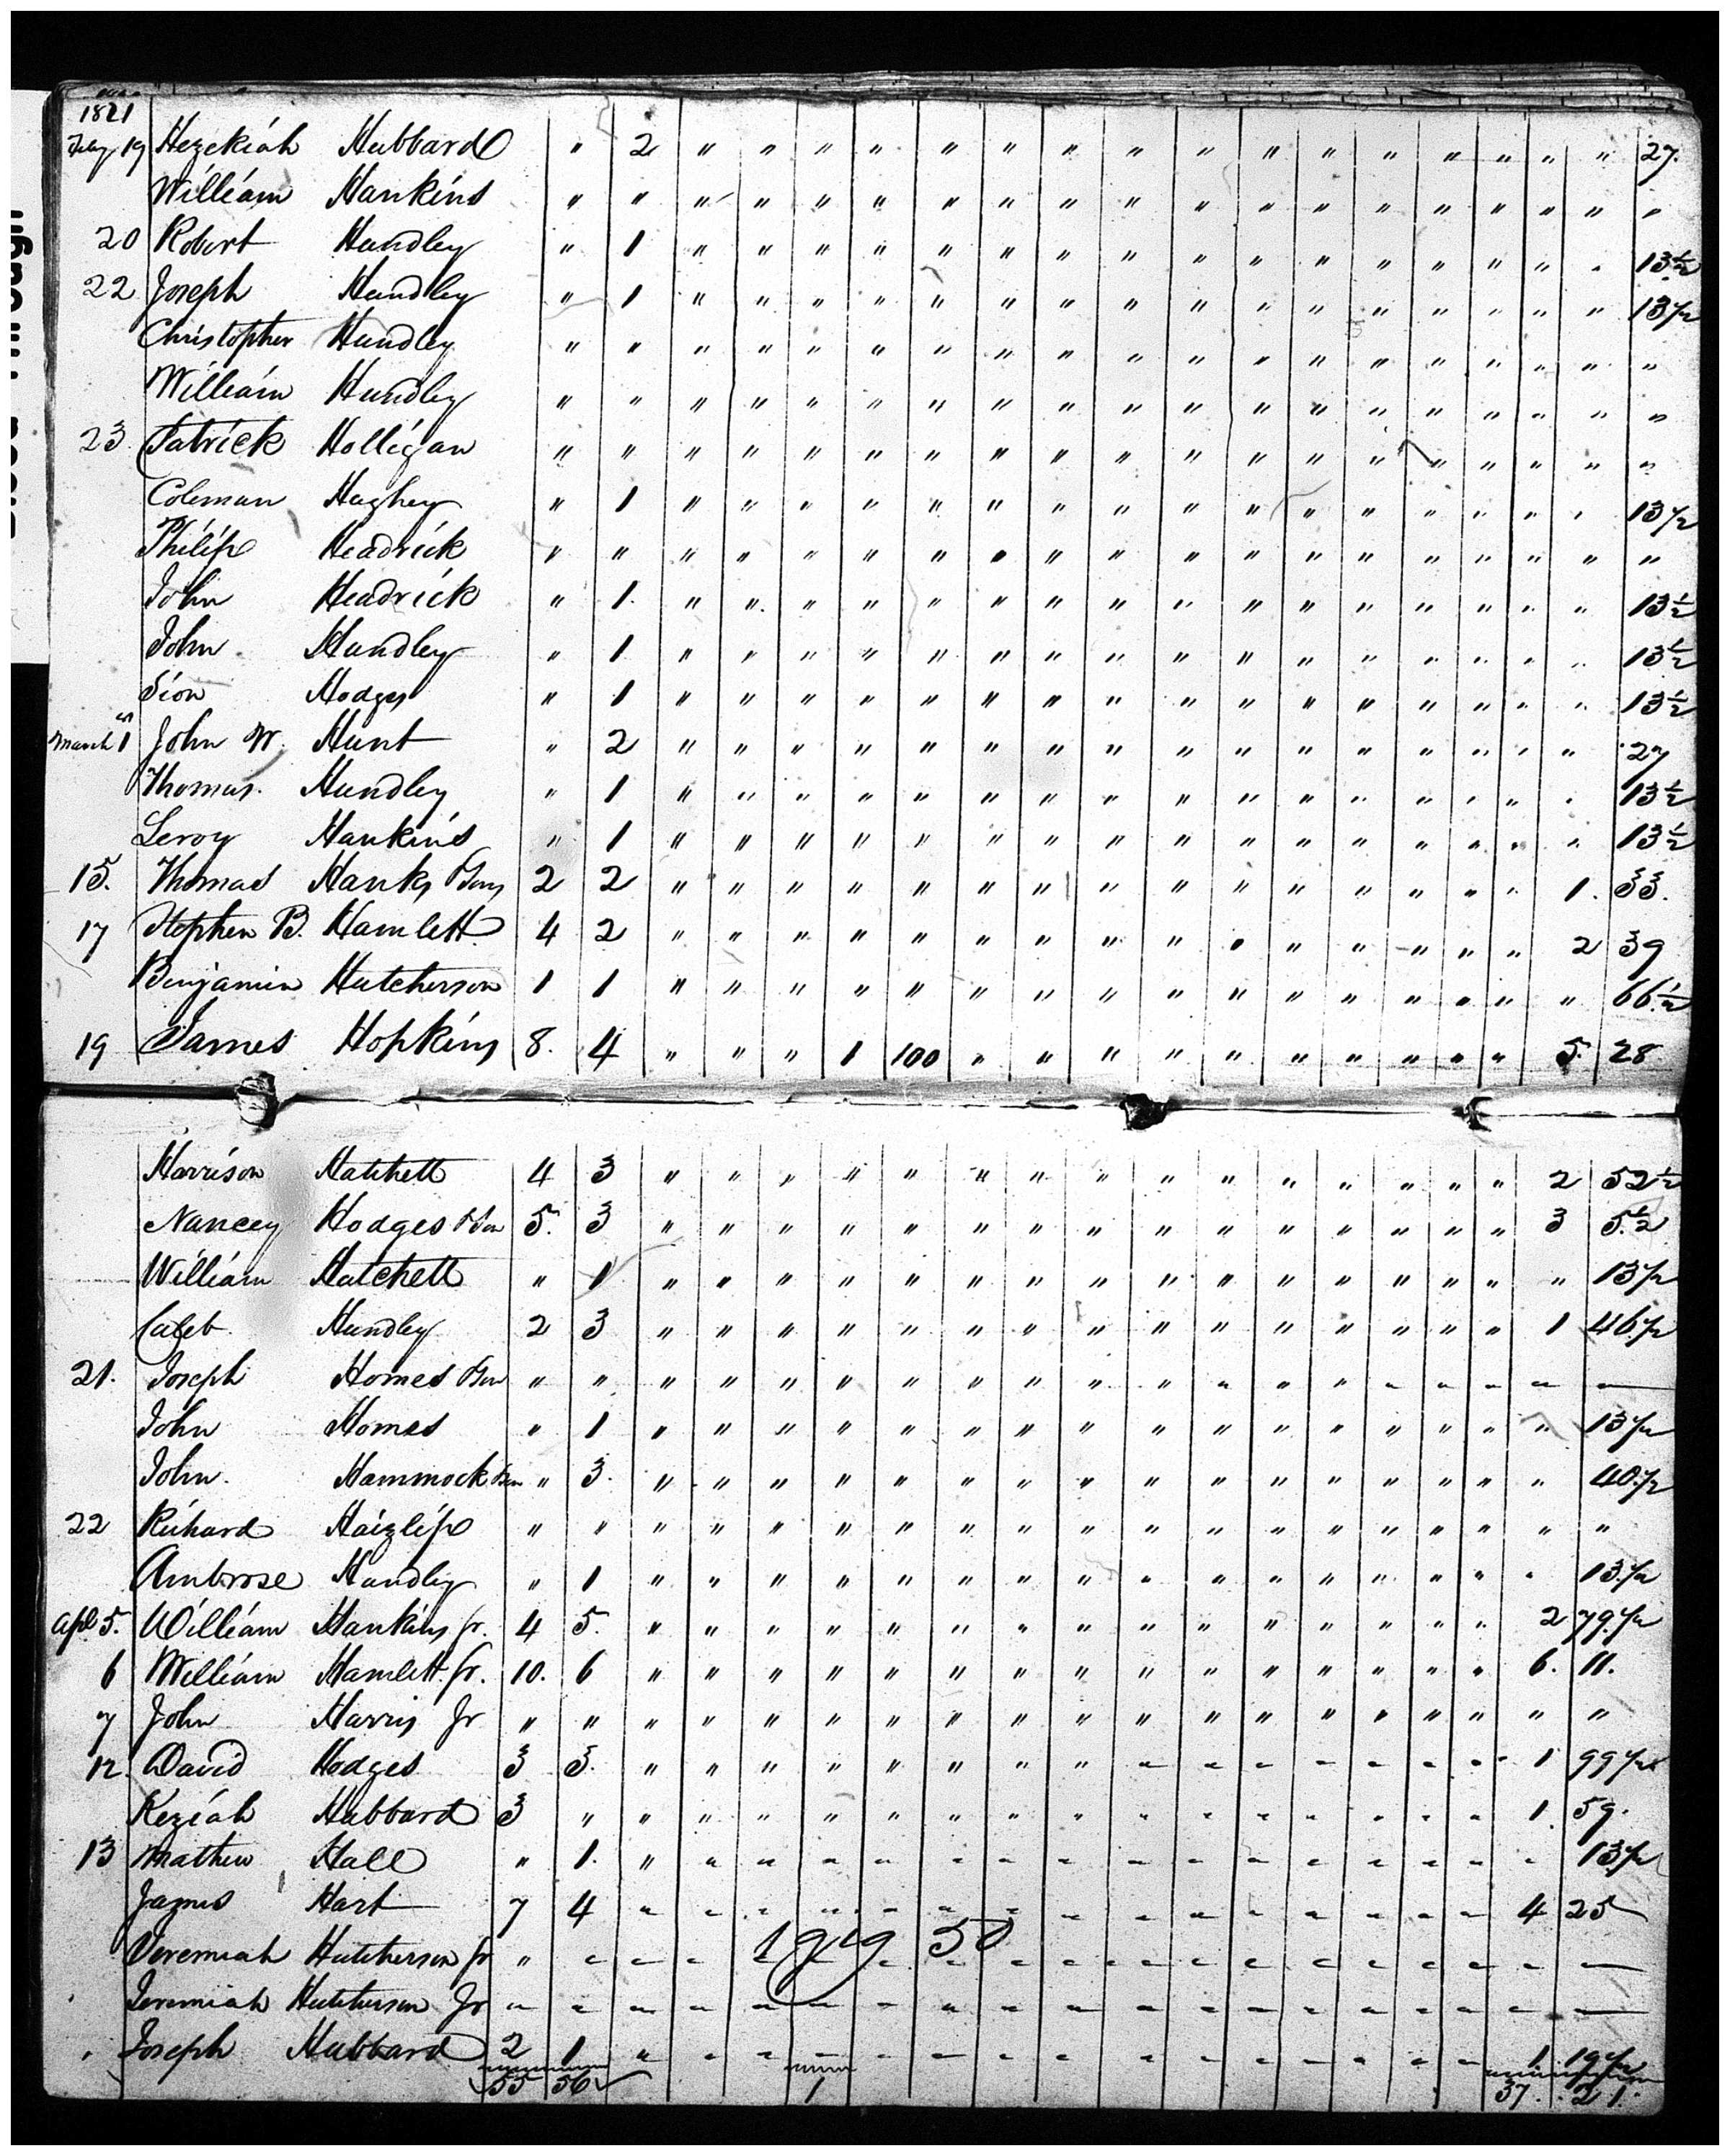 1821
Feby 19 Hezekiah Hubbard " 2 " " " " " " " " " " " " " " " " 27.
William Hankins " " " " " " " " " " " " " " " " " " "
20 Robert Hundley " 1 " " " " " " " " " " " " " " " " 13½
22 Joseph Hundley " 1 " " " " " " " " " " " " " " " " 13½
Christopher Hundley " " " " " " " " " " " " " " " " " " "
William Hundley " " " " " " " " " " " " " " " " " " "
23 Patrick Holligan " " " " " " " " " " " " " " " " " " "
Coleman Haghey " 1 " " " " " " " " " " " " " " " " 13½
Philip Headrick " " " " " " " " " " " " " " " " " " "
John Headrick " 1 " " " " " " " " " " " " " " " " 13½
John Hundley " 1 " " " " " " " " " " " " " " " " 13½
Sion Hodges " 1 " " " " " " " " " " " " " " " " 13½
March 1 John W. Hunt " 2 " " " " " " " " " " " " " " " " 27
Thomas Hundley " 1 " " " " " " " " " " " " " " " " 13½
Leroy Hankins " 1 " " " " " " " " " " " " " " " " 13½
15. Thomas Hanks 2 2 " " " " " " " " " " " " " " " 1. 33.
17 Stephen B. Hamlett 4 2 " " " " " " " " " " " " " " " 2 39
Benjamin Hutcherson 1 1 " " " " " " " " " " " " " " " " 66½
19 James Hopkins 8. 4 " " " 1 100 " " " " " " " " " " 5. 28
Harrison Hatchett 4 3 " " " " " " " " " " " " " " " 2 52½
Nancey Hodges 5. 3 " " " " " " " " " " " " " " " 3 5½
William Hatchett " 1 " " " " " " " " " " " " " " " " 13½
Caleb Hundley 2 3 " " " " " " " " " " " " " " " 1 46½
21. Joseph Homes " " " " " " " " " " " " " " " " " " —
John Homes " 1 " " " " " " " " " " " " " " " " 13½
John Hammock " 3 " " " " " " " " " " " " " " " " 40½
22 Richard Haizlip " " " " " " " " " " " " " " " " " " "
Ambrose Hundley " 1 " " " " " " " " " " " " " " " " 13½
Apl 5. William Hankins Jr. 4 5. " " " " " " " " " " " " " " " 2 79½
6 William Hamlett Jr. 10. 6 " " " " " " " " " " " " " " " 6. 11.
7 John Harris Jr " " " " " " " " " " " " " " " " " " "
12. David Hodges 3 5. " " " " " " " " " " " " " " " 1 99½
Keziah Hubbard 3 " " " " " " " " " " " " " " " " 1 59.
13 Mathew Hall " 1. " " " " " " " " " " " " " " " " 13½
James Hart 7 4 " " " " " " " " " " " " " " " 4 25
Jeremiah Hutcherson Jr " " " " " " " " " " " " " " " " " " —
Jeremiah Hutcherson Jr " " " " " " " " " " " " " " " " " " —
Joseph Hubbard 2 1 " " " " " " " " " " " " " " " 1 19½
55 56 1 37. 21.